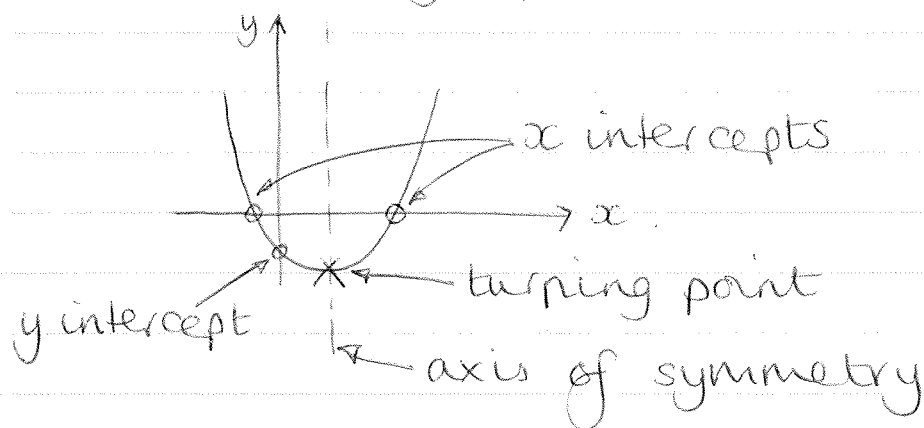 y
x intercepts
x
turning point
y intercept
axis of symmetry